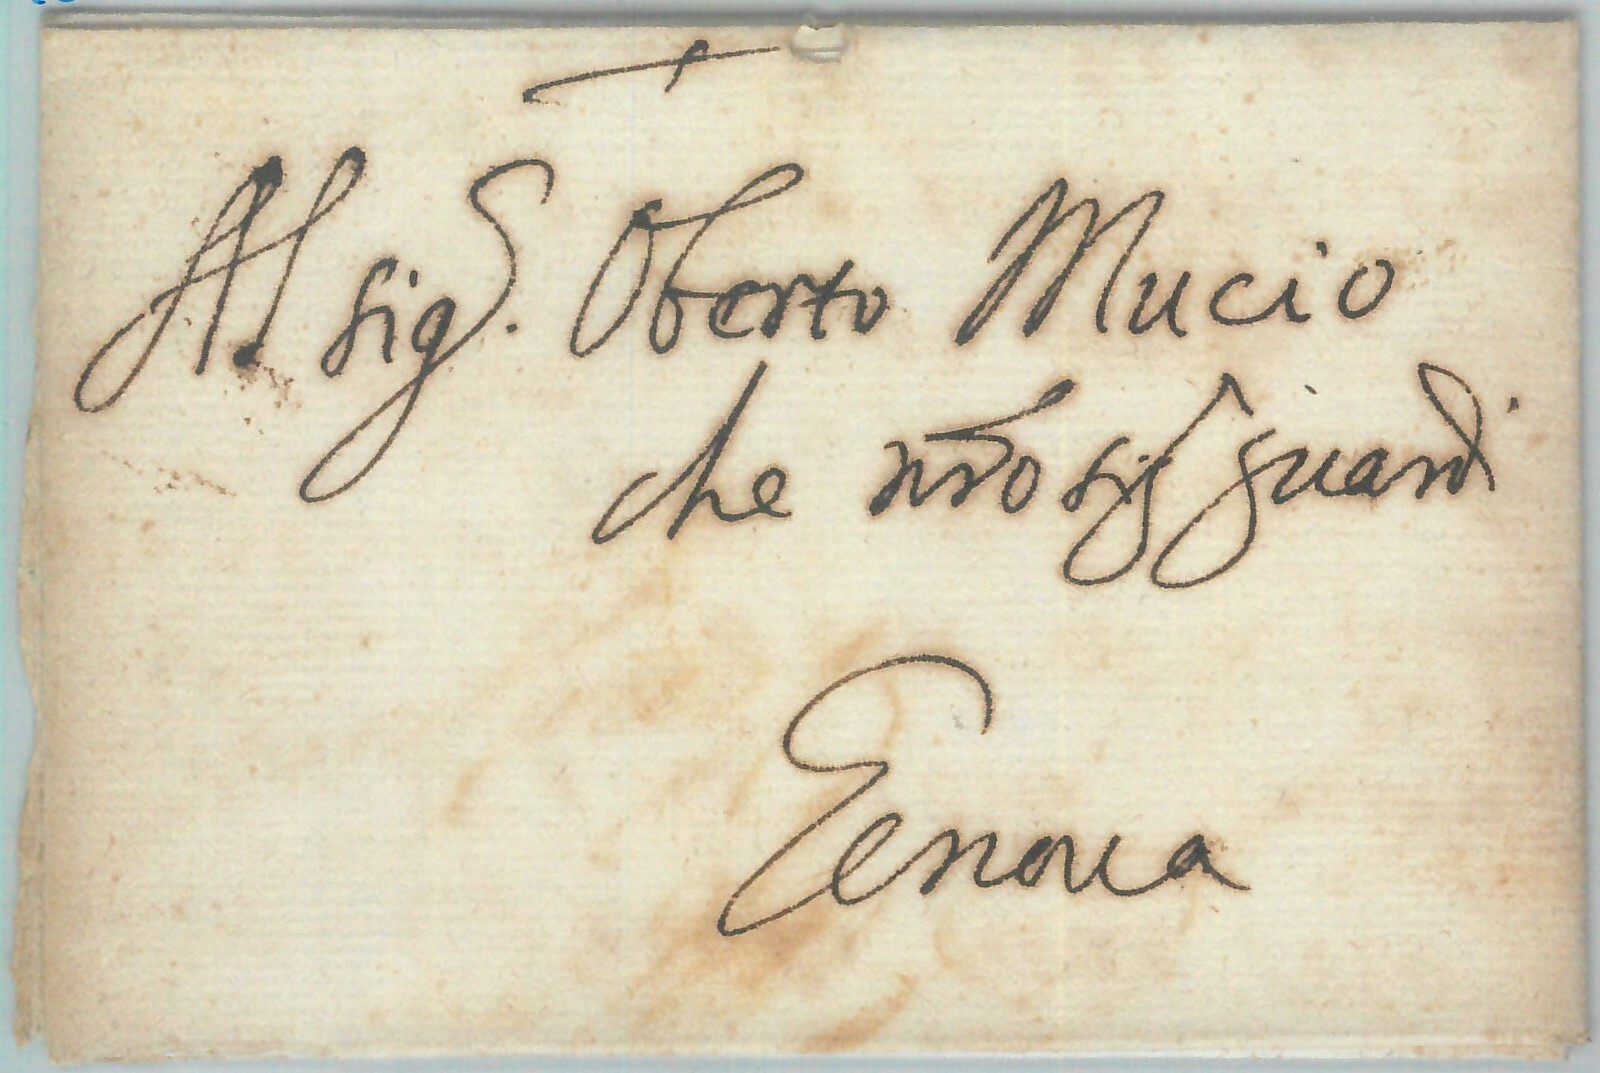 Al sig.r Oberto Mucio
che nro sig.r guardi
Genova